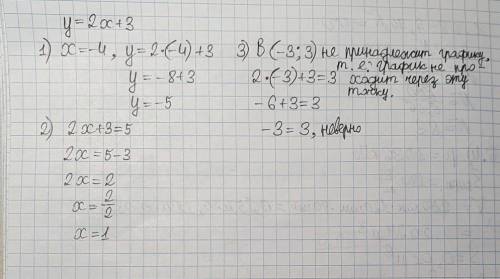 y=2x+3
1) x=-4, y=2·(-4)+3
y=-8+3
y=-5
2) 2x+3=5
2x=5-3
2x=2
x=2/2
x=1
3) В (-3; 3) не принадлежит графику,
т. е. график не про-
2·(-3)+3=3 ходит через эту
точку.
-6+3=3
-3=3, неверно